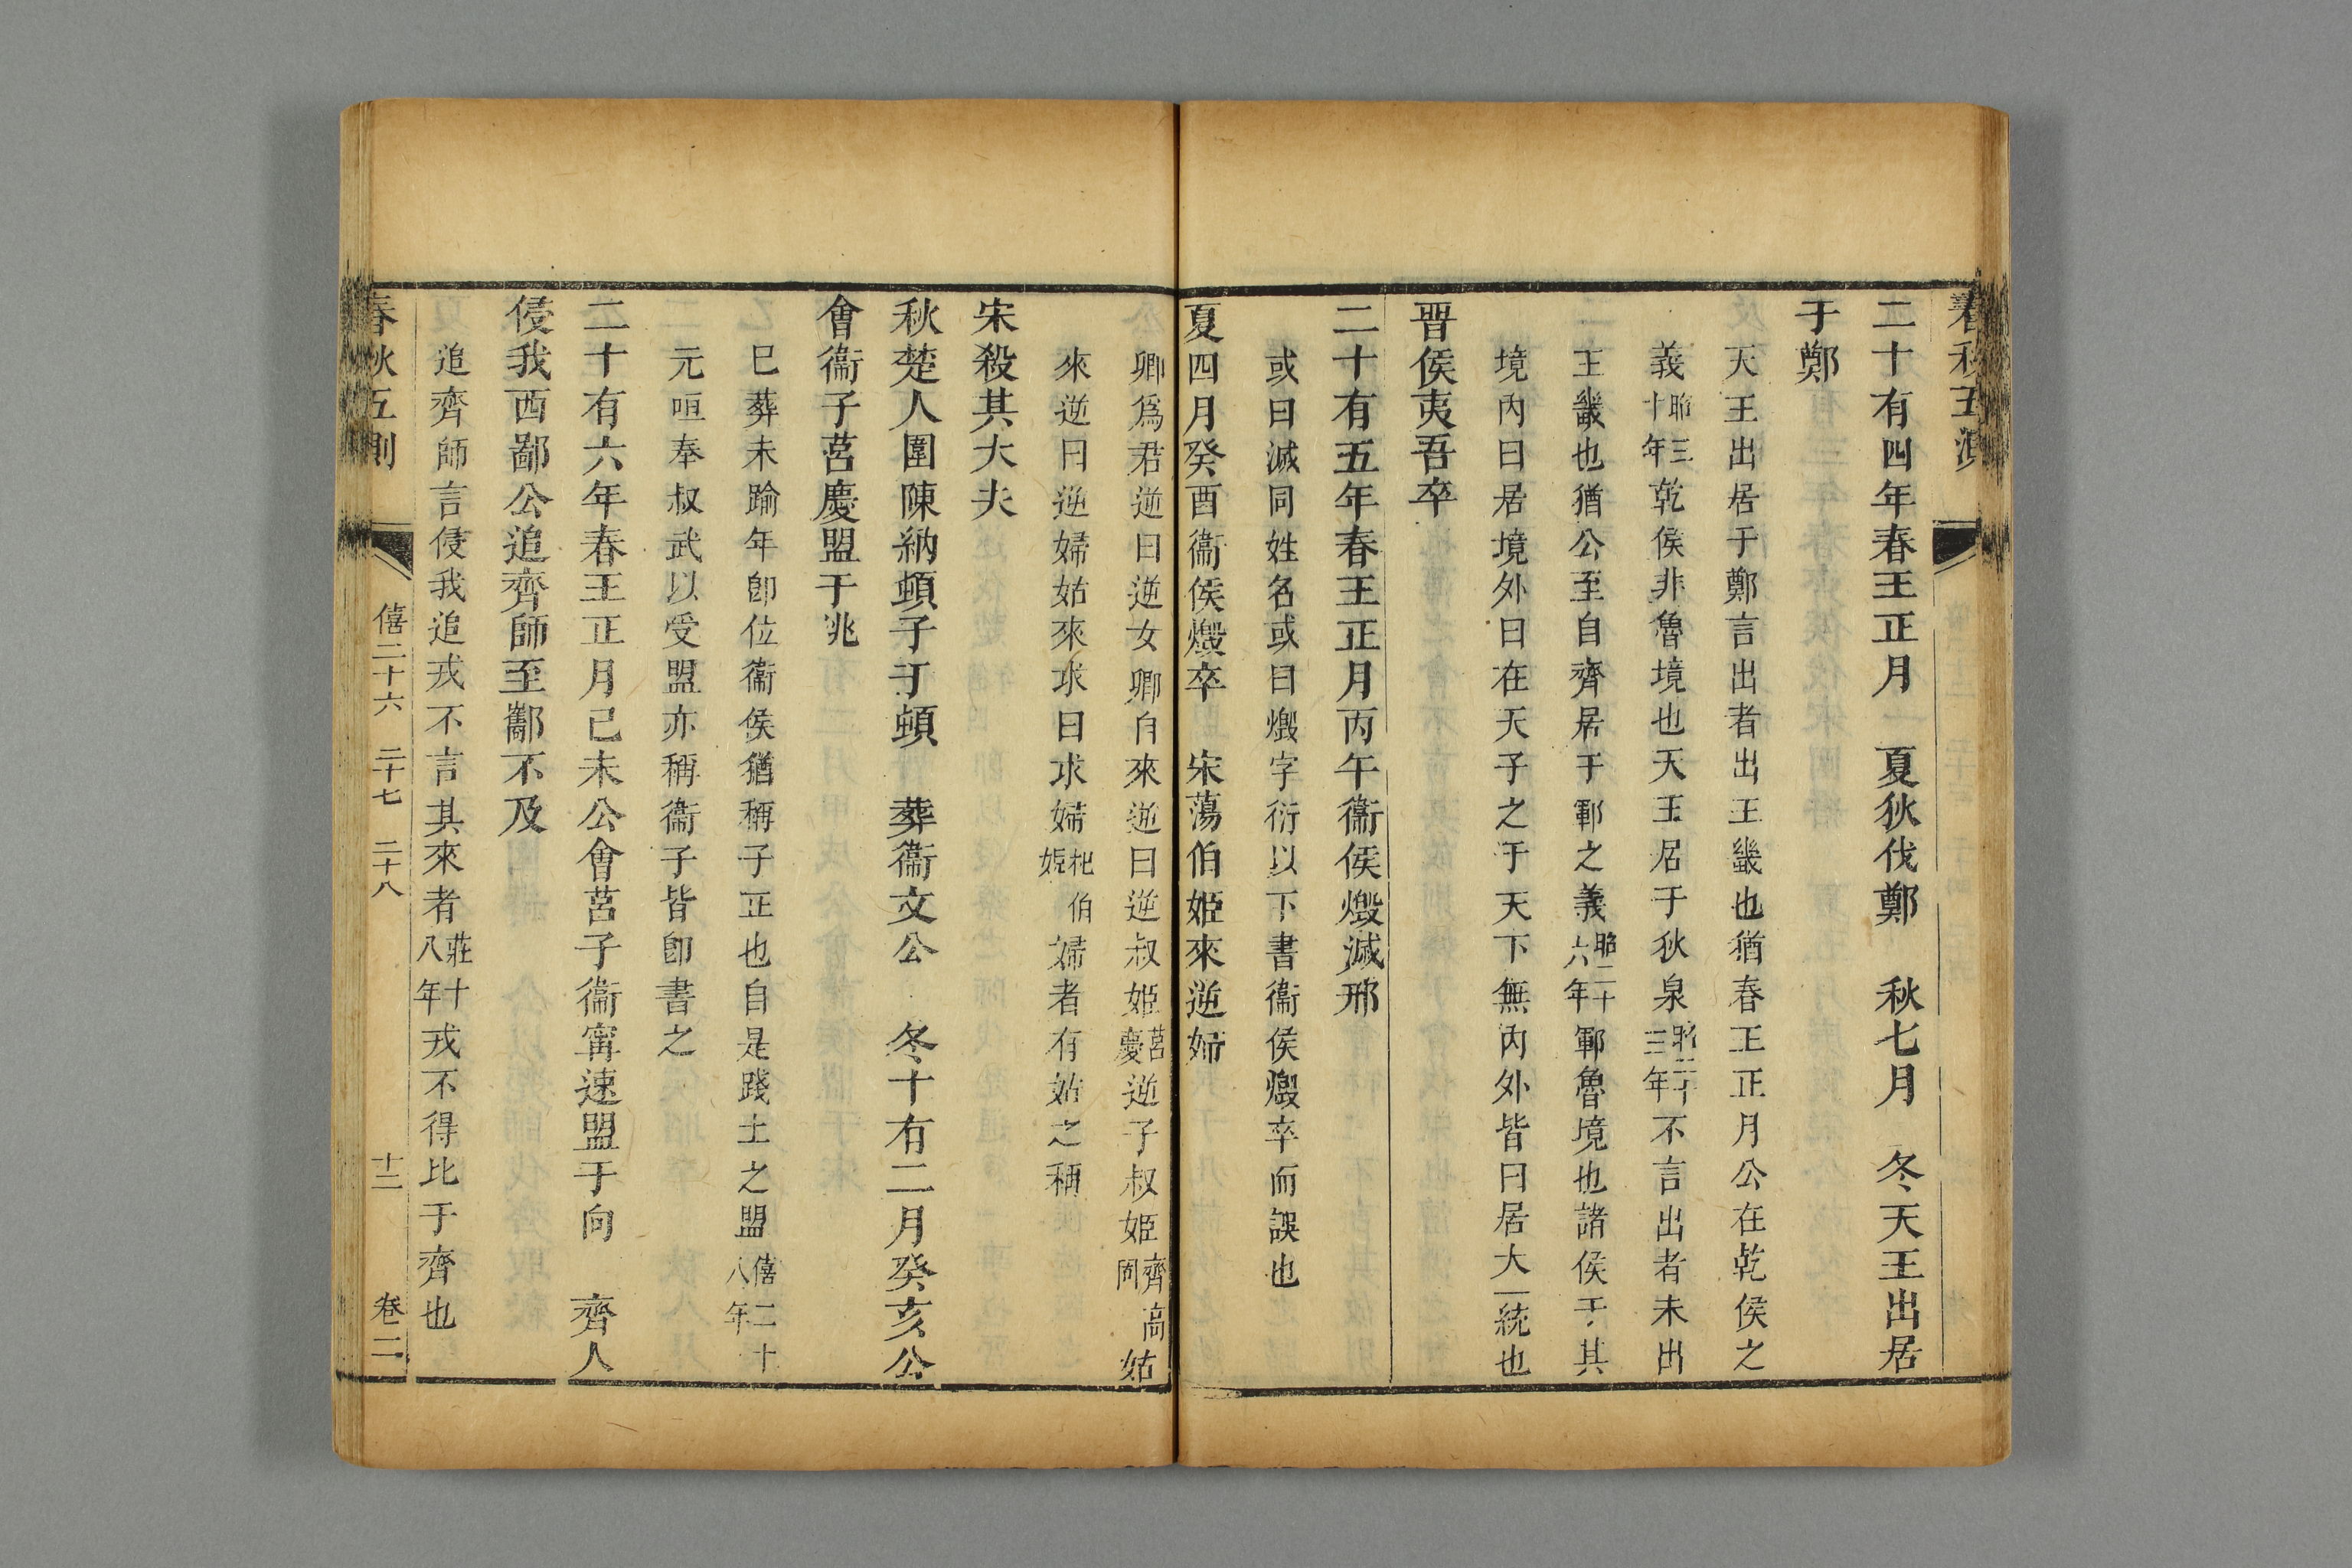 春秋五測
二十有四年春王正月　夏狄伐鄭　秋七月　冬天王出居
于鄭
天王出居于鄭言出者出王畿也猶春王正月公在乾侯之
義昭三十年乾侯非魯境也天王居于狄泉昭二十三年不言出者未出
王畿也猶公至自齊居于鄆之義昭二十六年鄆魯境也諸侯于其
境內曰居境外曰在天子之于天下無內外皆曰居大一統也
晉侯夷吾卒
二十有五年春王正月丙午衞侯燬滅邢
或曰滅同姓名或曰燬字衍以下書衞侯燬卒而誤也
夏四月癸酉衞侯燬卒　宋蕩伯姬來逆婦
卿爲君逆曰逆女卿自來逆曰逆叔姬莒慶逆子叔姬齊高固姑
來逆曰逆婦姑來求曰求婦杞伯姬婦者有姑之稱
宋殺其大夫
秋楚人圍陳納頓子于頓　葬衞文公　冬十有二月癸亥公
會衞子莒慶盟于洮
巳葬未踰年卽位衞侯猶稱子正也自是踐土之盟僖二十八年
元咺奉叔武以受盟亦稱衞子皆卽書之
二十有六年春王正月己未公會莒子衞甯速盟于向　齊人
侵我西鄙公追齊師至酅不及
追齊師言侵我追戎不言其來者莊十八年戎不得比于齊也
春秋五測　僖二十六　二十七　二十八　十二　卷二